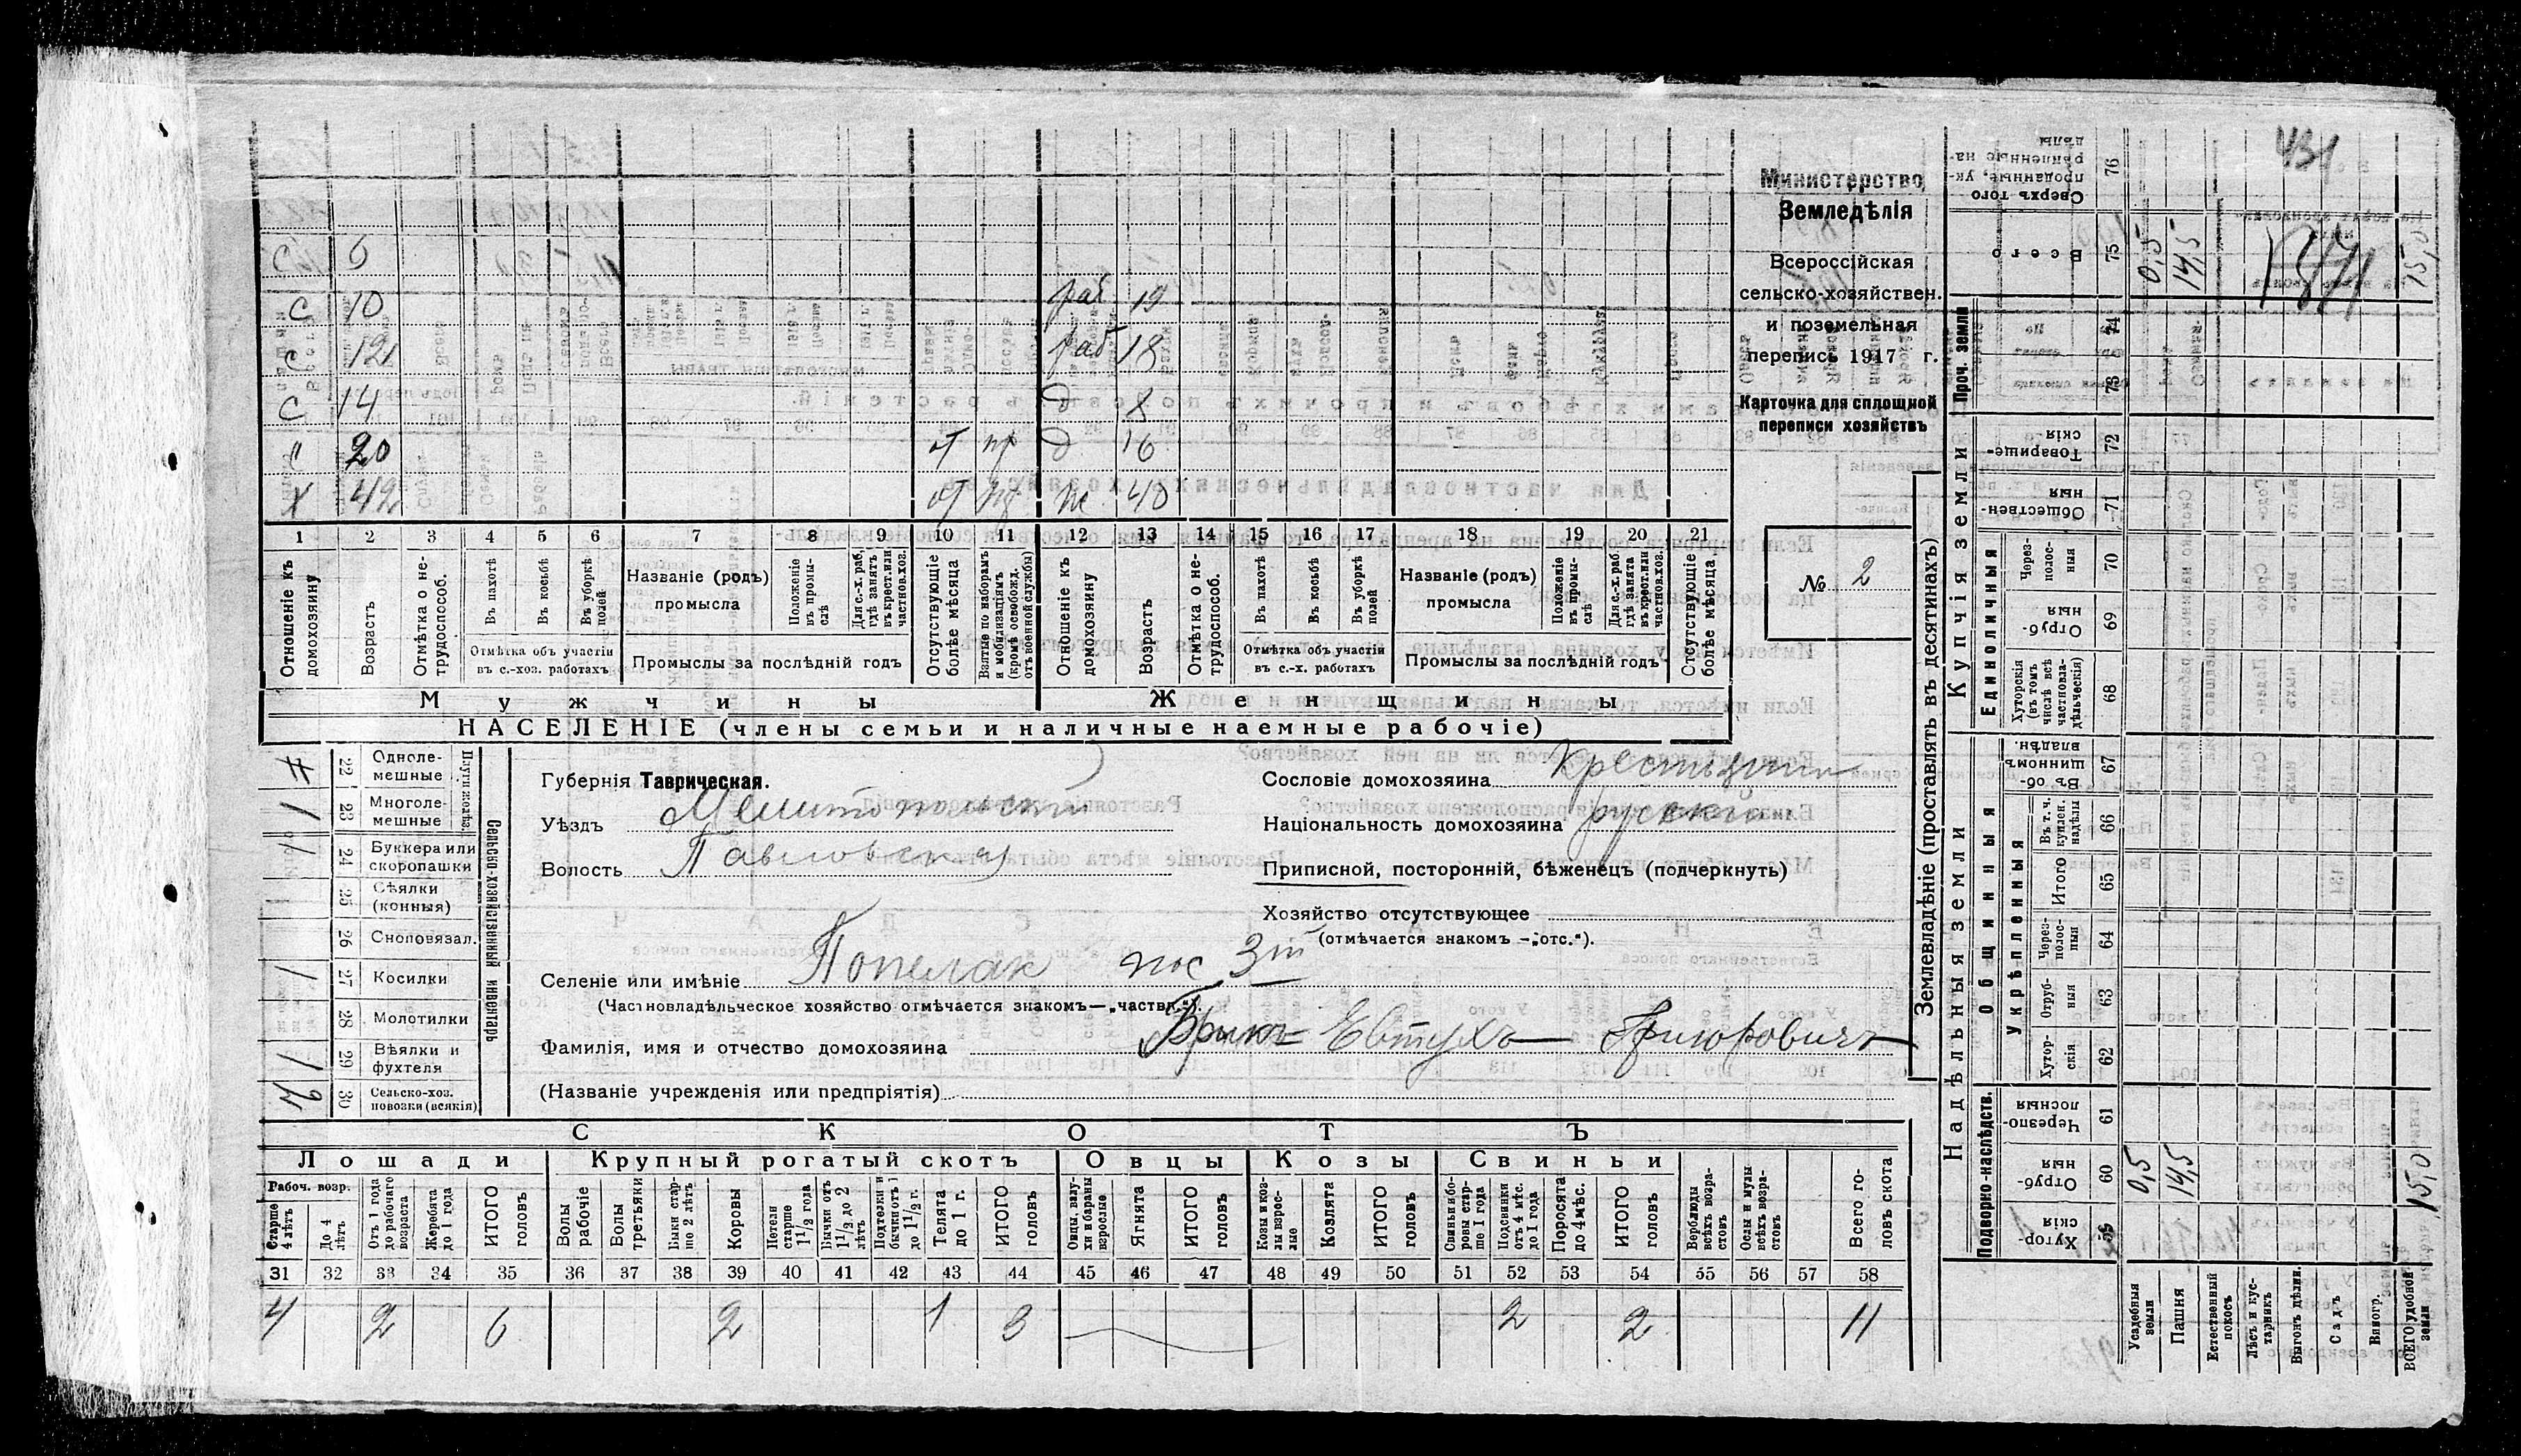 431
Министерство
Земледѣлія
Всероссійская
сельско-хозяйствен.
и поземельная
перепись 1917 г.
Карточка для сплошной
переписи хозяйствъ
№ 2
С 6
С 10 раб 19
С 12 раб 18
С 14 д 8
С 20 от мб д 16
Х 42 от мб ж 40
1 2 3 4 5 6 7 8 9 10 11 12 13 14 15 16 17 18 19 20 21
Отношеніе къ домохозяину
Возрастъ
Отмѣтка о нетрудоспособ.
Въ пахотѣ
Въ косьбѣ
Въ уборкѣ полей
Отмѣтка объ участіи въ с.-хоз. работахъ
Названіе (родъ) промысла
Положеніе въ промыслѣ
Для с.-х. раб, гдѣ занятъ въ крест. или частнов. хоз.
Промыслы за послѣдній годъ
Отсутствующіе болѣе мѣсяца
Взятые по наборамъ и мобилизаціямъ (кромѣ освобожд. отъ военной службы)
Отношеніе къ домохозяину
Возрастъ
Отмѣтка о нетрудоспособ.
Въ пахотѣ
Въ косьбѣ
Въ уборкѣ полей
Отмѣтка объ участіи въ с.-х. работахъ
Названіе (родъ) промысла
Положеніе въ промыслѣ
Для с.-х. раб. гдѣ занята въ крест. или частнов. хоз.
Промыслы за послѣдній годъ
Отсутствующіе болѣе мѣсяца
Мужчины Женщины
НАСЕЛЕНІЕ (члены семьи и наличные наемные рабочіе)
Сельско-хозяйственный инвентарь
22 Однолемешные
1 23 Многолемешные
1 24 Буккера или скоропашки
25 Сѣялки (конныя)
26 Сноповязал.
1 27 Косилки
28 Молотилки
1 29 Вѣялки и фухтеля
30 Сельско-хоз. повозки (всякія)
Губернія Таврическая.
Уѣздъ Мелитопольский
Волость Павловская
Селеніе или имѣніе Попелак пос 3й
(Частновладѣльческое хозяйство отмѣчается знакомъ—„частвл.“).
Фамилія, имя и отчество домохозяина Брикъ Евтухъ Григоровичъ
(Названіе учрежденія или предпріятія)
Сословіе домохозяина крестьянин
Національность домохозяина русский
Приписной, посторонній, бѣженецъ (подчеркнуть)
Хозяйство отсутствующее
(отмѣчается знакомъ —„отс.“).
СКОТЪ
Лошади Крупный рогатый скотъ Овцы Козы Свиньи
Рабоч. возр.
Старше 4 лѣтъ
До 4 лѣтъ
Отъ 1 года до рабочаго возраста
Жеребята до 1 года
ИТОГО головъ
Волы рабочіе
Волы третьяки
Быки старше 2 лѣтъ
Коровы
Нетели старше 1 1/2 года
Бычки отъ 1 1/2 до 2 лѣтъ
Подтелки и бычки отъ 1 до 1 1/2 г.
Телята до 1 г.
ИТОГО головъ
Овцы, валухи и бараны взрослые
Ягнята
ИТОГО головъ
Козы и козлы взрослые
Козлята
ИТОГО головъ
Свиньи и боровы старше 1 года
Подсвинки отъ 4 мѣс. до 1 года
Поросята до 4 мѣс.
ИТОГО головъ
Верблюды всѣхъ возрастовъ
Ослы и мулы всѣхъ возрастовъ
Всего головъ скота
31 32 33 34 35 36 37 38 39 40 41 42 43 44 45 46 47 48 49 50 51 52 53 54 55 56 57 58
4 2 6 2 1 3 2 2 11
Землевладѣніе (проставлять въ десятинахъ)
Надѣльныя земли
Купчія земли
Проч. земли
Подворно-наслѣдств.
Общинныя
Укрѣпленныя
Единоличныя
Хуторскія 59
Отрубныя 60 0,5 14,5 15,0
Черезполосныя 61
Хуторскія 62
Отрубныя 63
Черезполосныя 64
Итого 65
Въ т. ч. куплен. надѣлы 66
Въ общинномъ владѣн. 67
Хуторскія (въ томъ числѣ всѣ частновладѣльческія) 68
Отрубныя 69
Черезполосныя 70
Общественныя 71
Товарищескія 72
73
74
Всего 75 0,5 14,5 15,0
Сверхъ того проданные, укрѣпленные надѣлы 76
Усадебныя земли
Пашня
Естественный покосъ
Лѣсъ и кустарникъ
Выгонъ дѣлин.
Садъ
Виногр.
ВСЕГО удобной земли